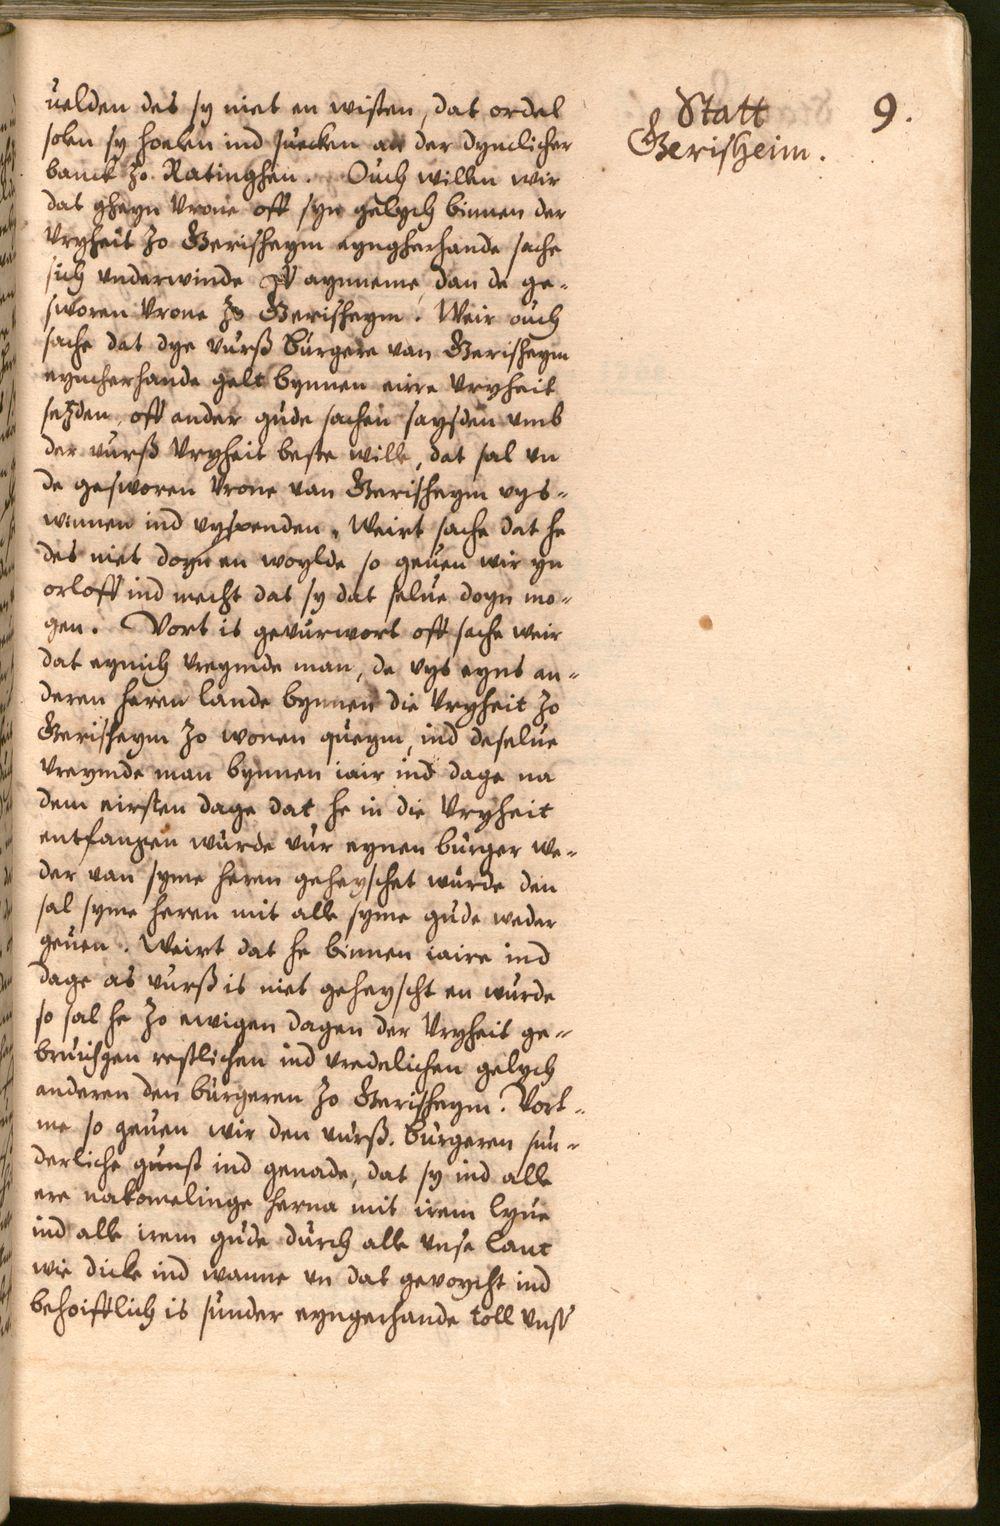 Statt
Gerisheim.
9.
uelden des sy niet en wisten, dat ordel
solen sy hoelen ind suecken an der dynclicher
banck zo Ratinghen. Ouch willen wir
dat gheyn Vrone off syn gelych binnen der
Vryheit zo Gerisheym eyngherhande sache
sich underwinde off aynneme, dan de ge-
sworen Vrone zo Gerisheym. Weir ouch
sache dat dye vurß Burgere van Gerisheym
eyncherhande gelt bynnen eirre Vryheit
setzden, off ander gude sachen saysden umb
der vurß Vryheit beste wille, dat sal un
de gesworen Vrone van Gerisheym vys-
winnen ind vyspenden. Weirt sache dat he
des niet doyn en woylde so geuen wir yn
orloff ind macht dat sy dat selue doyn mo-
gen. Vort is gevurwort off sache weir
dat eynich vreymde man, de vys eyns an-
deren heren lande bynnen die Vryheit zo
Gerisheym zo wonen queym, ind deselue
vreymde man bynnen iair ind dage na
dem eirsten dage dat he in die Vryheit
entfangen wurde vur eynen burger we-
der van syme heren geheyschet wurde den
sal syme heren mit alle syme gude weder
geuen. Weirt dat he binnen iaire ind
dage as vurß is niet geheyscht en wurde
so sal he zo ewigen dagen der Vryheit ge-
bruichgen restlichen ind vredelichen gelych
anderen den burgeren zo Gerisheym. Vort-
me so geuen wir den vurß. Burgeren sun-
derliche gunst ind genade, dat sy ind alle
ere nakomelinge herna mit irem lyue
ind alle irem gude durch alle unse lant
wie dicke ind wanne un dat gevoycht ind
behoifflich is sunder eyngerhande toll unß